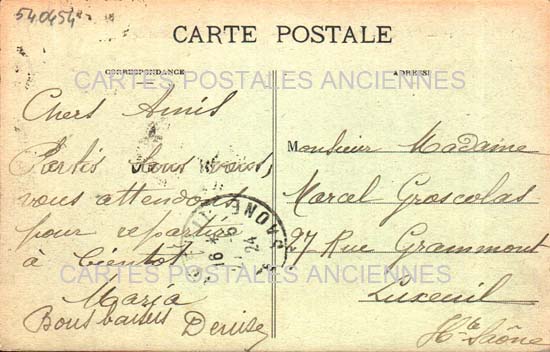 540454
CARTE POSTALE
CORRESPONDANCE
ADRESSE
CARTES POSTALES ANCIENNES
Chers Amis
Partis sans vous,
vous attendons
pour repartir
à bientôt
Maria
Bons baisers Denise
Monsieur Madame
Marcel Groscolas
97 Rue Grammont
Luxeuil
Hte Saône
CARTES POSTALES ANCIENNES